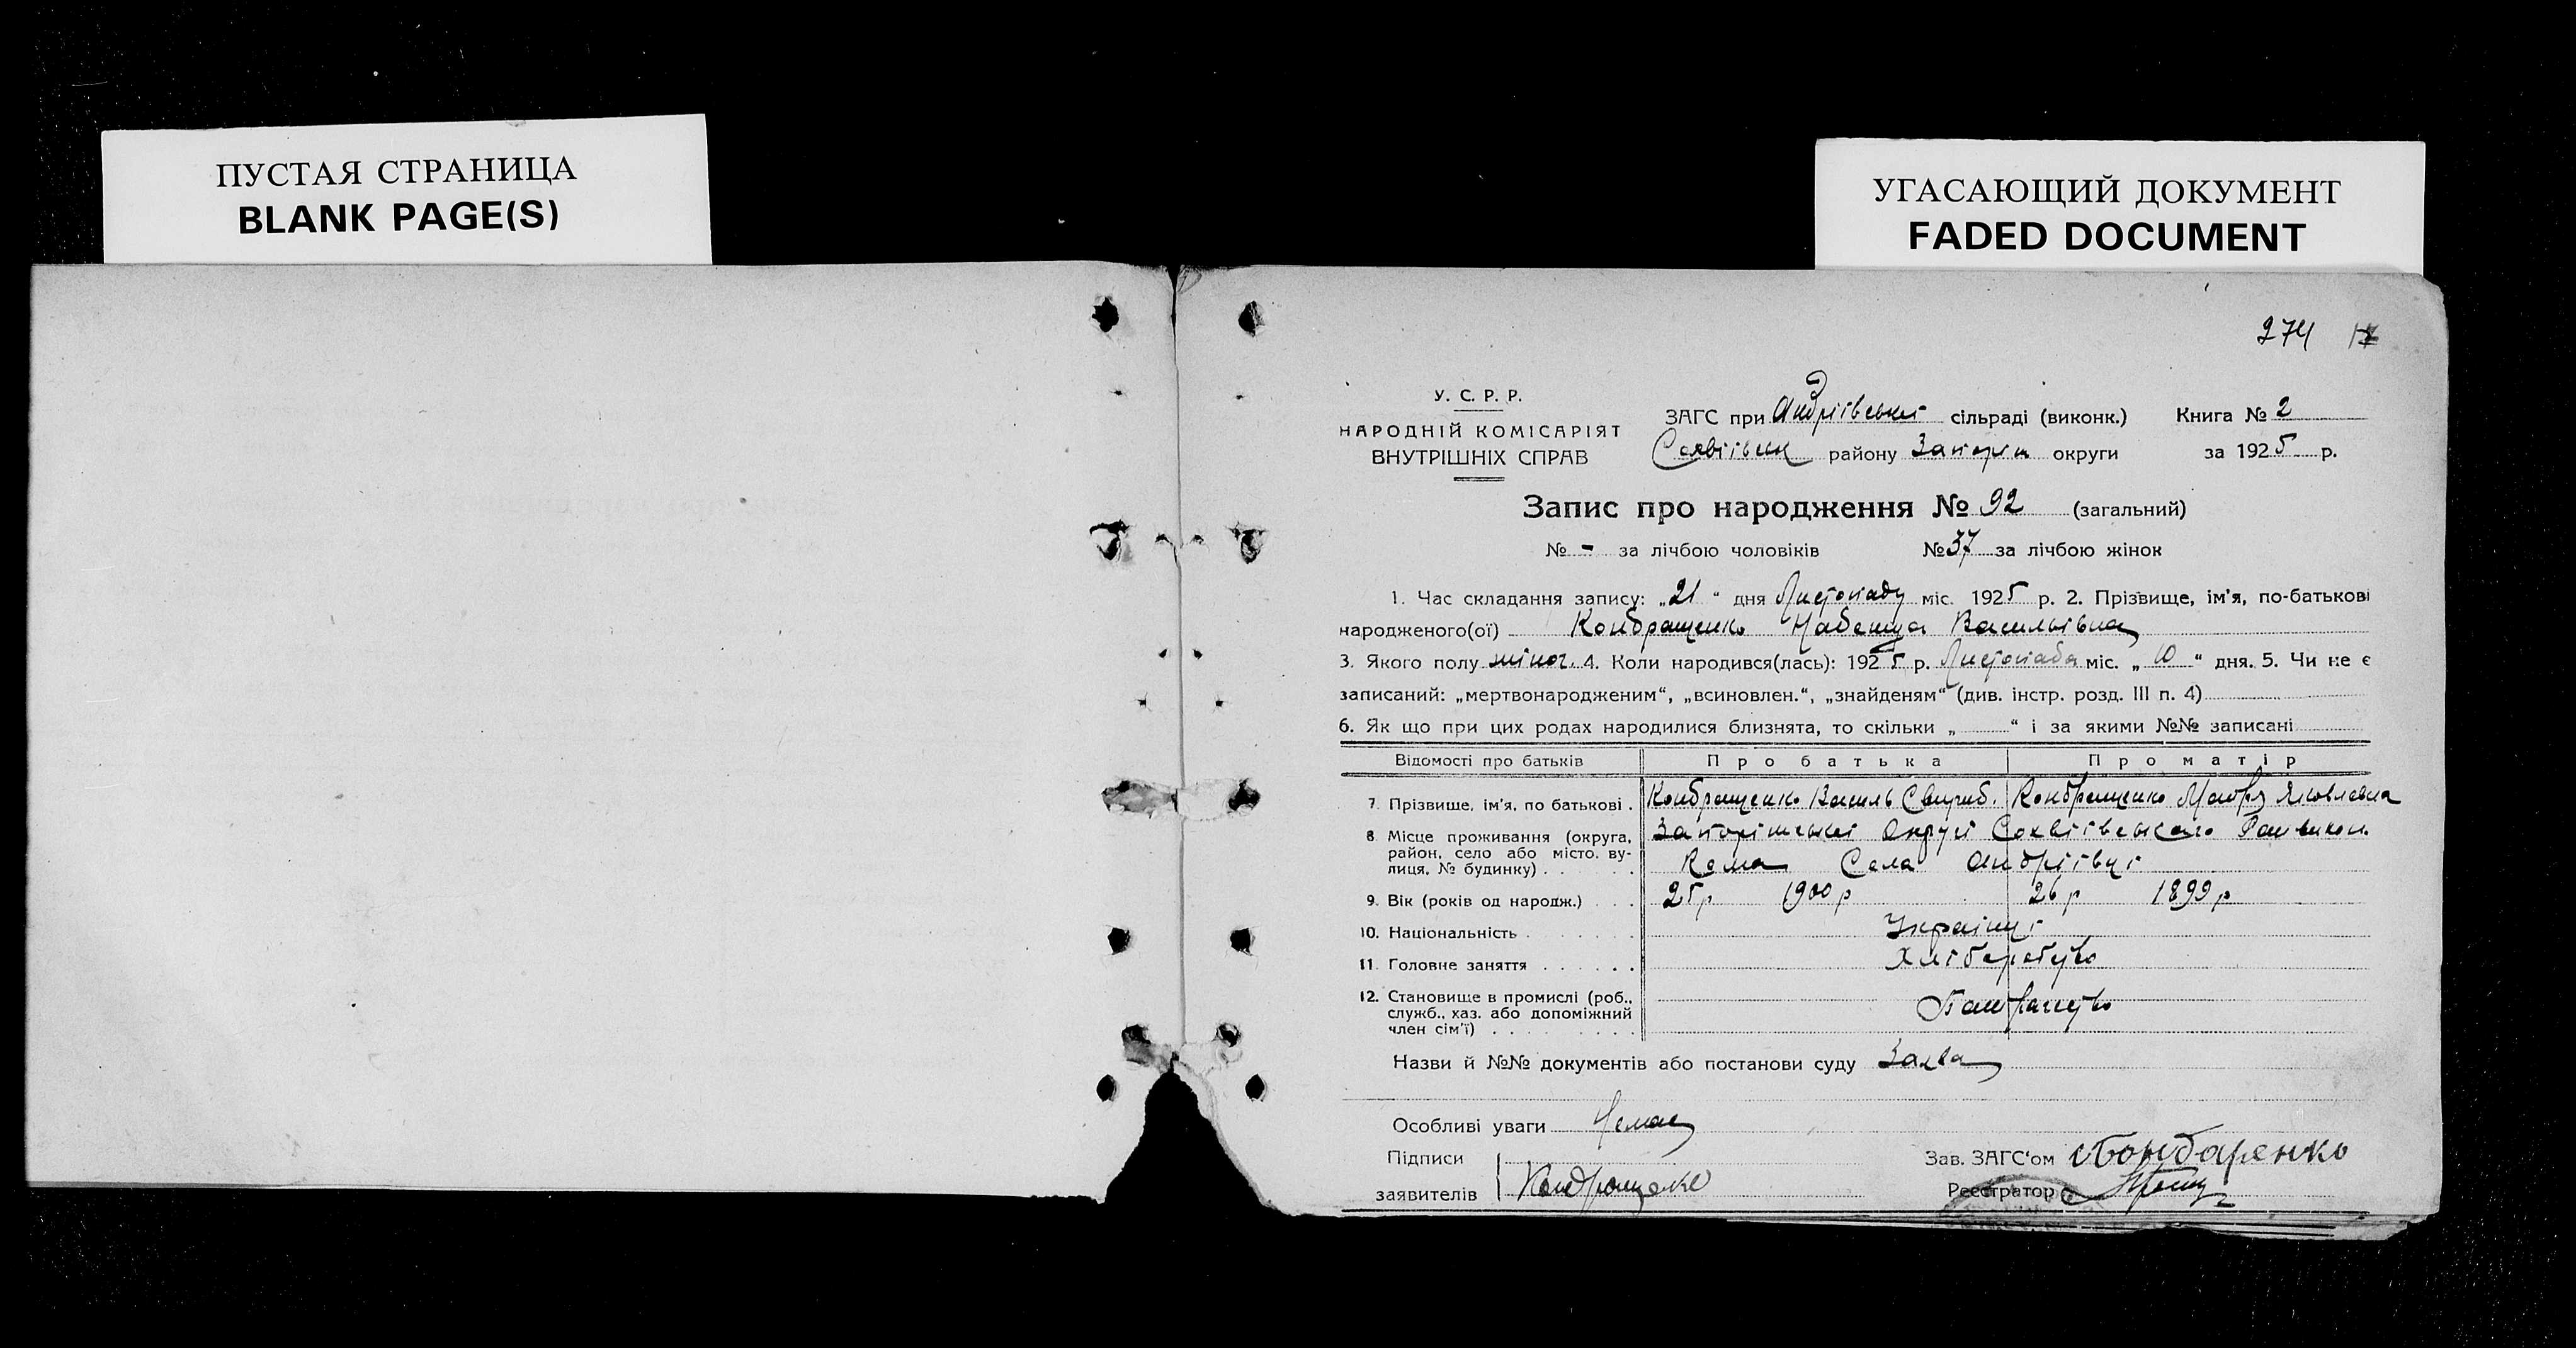 ПУСТАЯ СТРАНИЦА
BLANK PAGE(S)
УГАСАЮЩИЙ ДОКУМЕНТ
FADED DOCUMENT
274
У. С. Р. Р.
НАРОДНІЙ КОМІСАРІЯТ
ВНУТРІШНІХ СПРАВ
ЗАГС при Андріївській сільраді (виконк.) Книга № 2
району Запоріз округи за 1925 р.
Запис про народження № 92 (загальний)
№ - за лічбою чоловіків № 37 за лічбою жінок
1. Час складання запису: „21“ дня Листопаду міс. 1925 р. 2. Прізвище, ім'я, по-батькові
народженого(ої) Кондращенко Надежда Васильівна
3. Якого полу жіноч. 4. Коли народився(лась): 1925 р. Листопада міс. „10“ дня. 5. Чи не є
записаний: „мертвонародженим“, „всиновлен.“, „знайденям“ (див. інстр. розд. III п. 4)
6. Як що при цих родах народилися близнята, то скільки „ “ і за якими №№ записані
Відомості про батьків Про батька Про матір
7. Прізвище, ім'я, по батькові . Кондращенко Василь Свирид. Кондращенко Мавра Яковлевна
8. Місце проживання (округа, Запоріжської Округі Софіівського Райвикон.
район, село або місто, ву-
лиця, № будинку) . . . Села Андріївці
9. Вік (років од народж.) . . . 25 р 1900 р 26 р 1899 р
10. Національність . . . Українці
11. Головне заняття . . . Хліборобство
12. Становище в промислі (роб.,
служб., хаз. або допоміжний
член сім'ї) . . .
Назви й №№ документів або постанови суду Заява
Особливі уваги Немає
Підписи Зав. ЗАГС'ом Бондаренко
заявителів Кондращенко Реєстратор